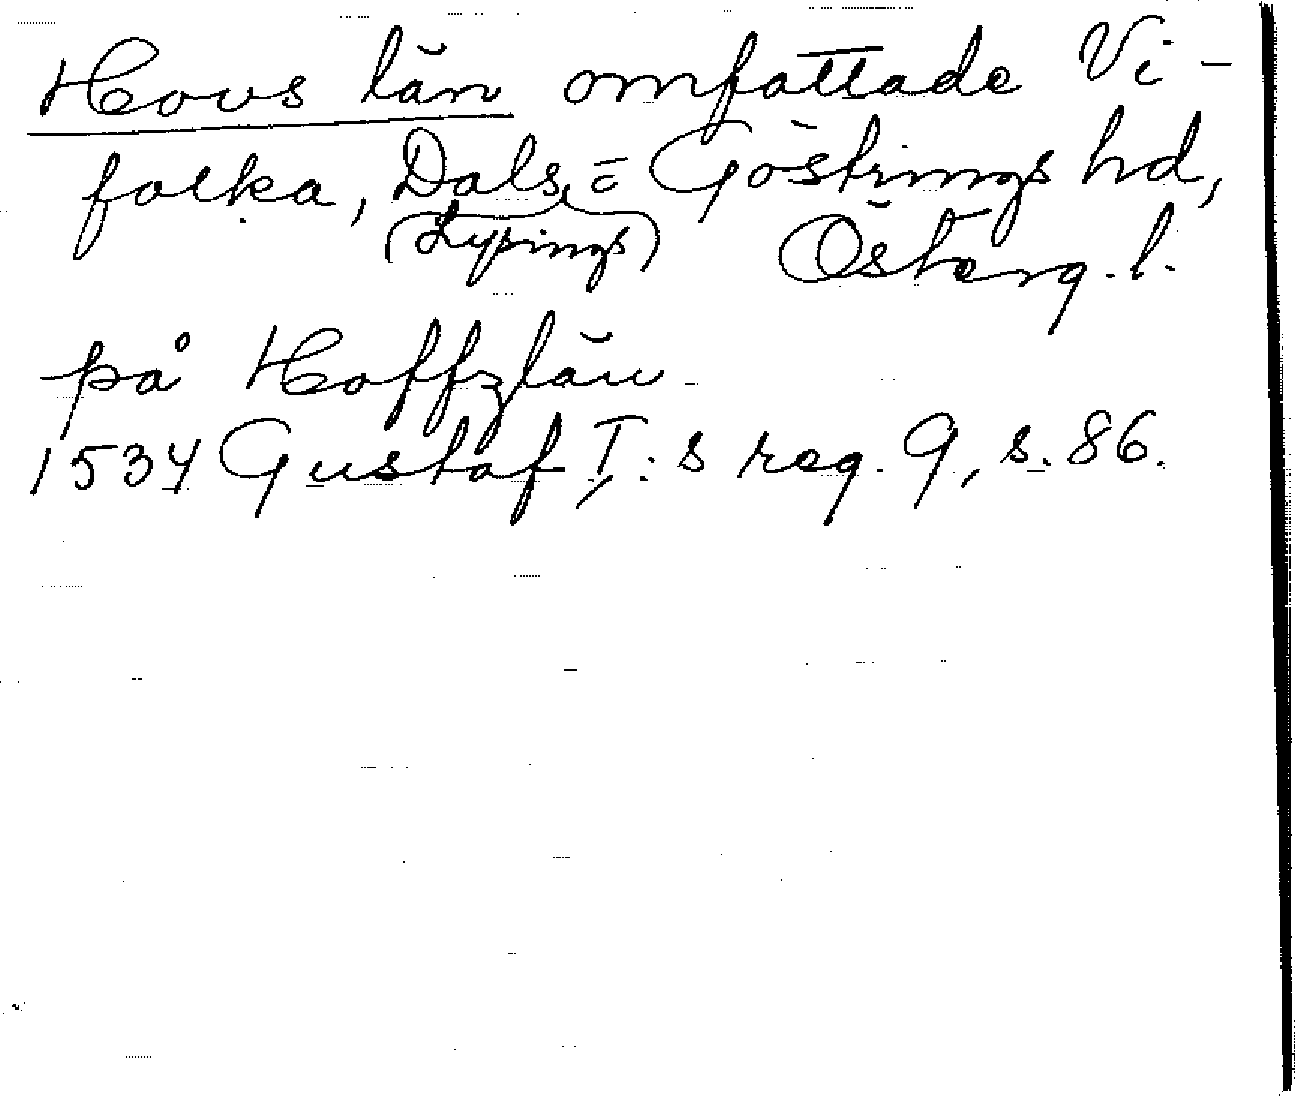 Hovs län omfattade Vi-
folka, Dals, o Göstrings hd,
(Lysings) Österg. l.
på Hoffzlän
1534 Gustaf I:s reg. 9, s. 86.